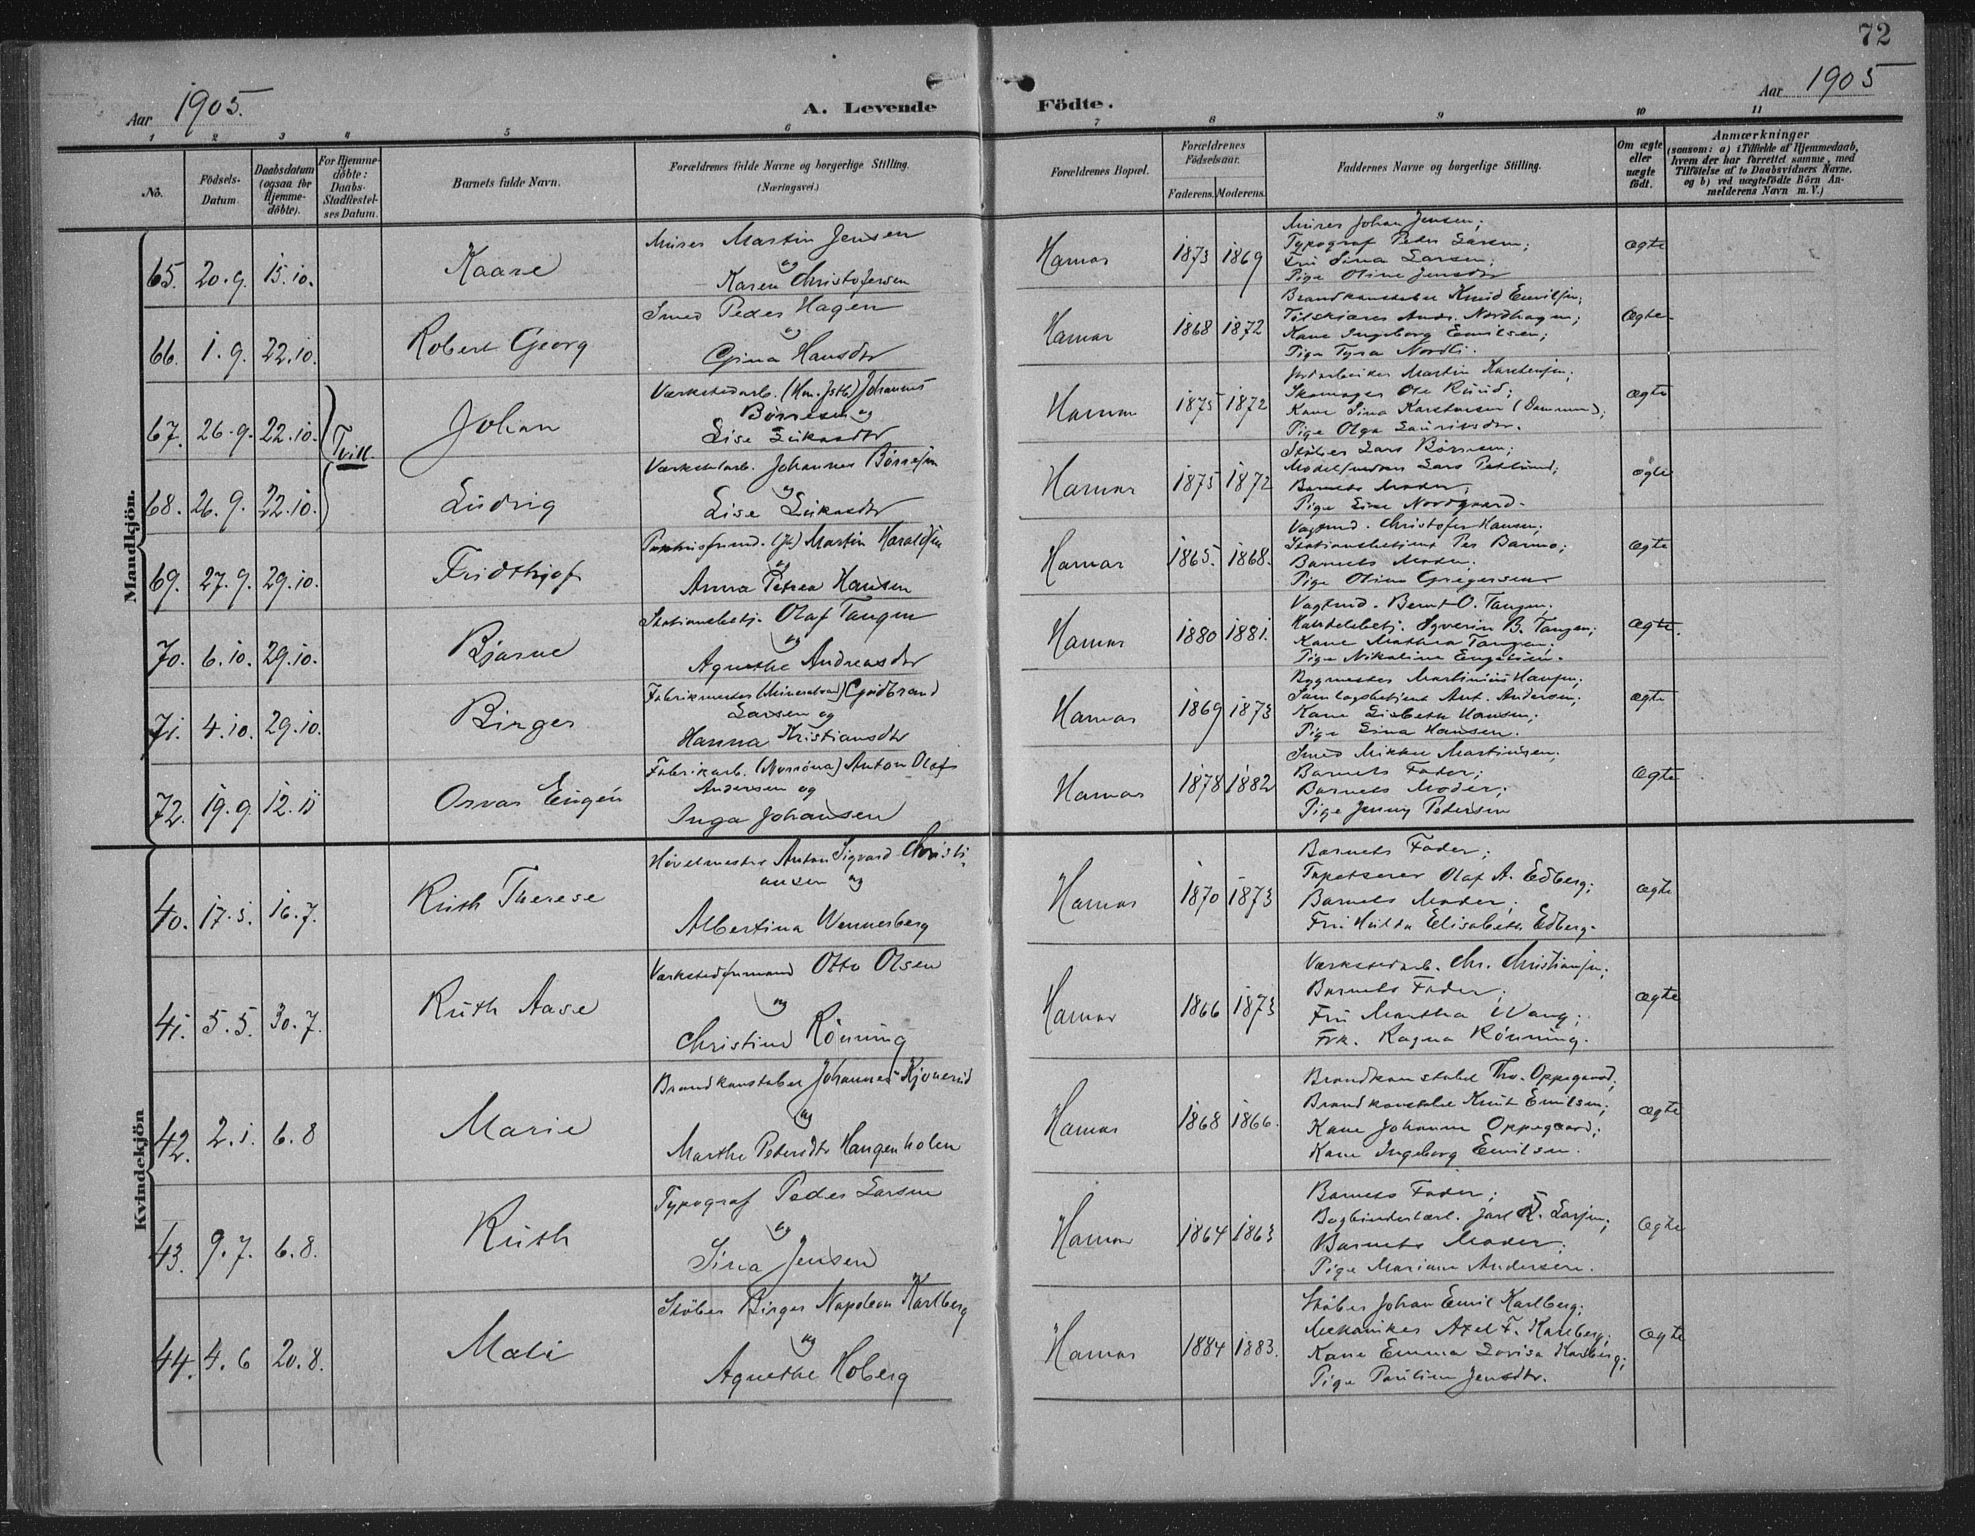 72
Aar 1905.
A. Levende Födte.
Aar 1905
1 2 3 4 5 6 7 8 9 10 11
No.
Födsels-Datum.
Daabsdatum (ogsaa for Hjemme-döbte).
For Hjemme-döbte: Daabs-Stadfæstel-ses Datum.
Barnets fulde Navn.
Forældrenes fulde Navne og borgerlige Stilling.
(Næringsvei.)
Forældrenes Bopæl.
Forældrenes Födselsaar.
Faderens. Moderens.
Faddernes Navne og borgerlige Stilling.
Om ægte eller uægte födt.
Anmærkninger
(saasom: a) i Tilfælde af Hjemmedaab, hvem der har forrettet samme, med Tilföielse af to Daabsvidners Navne, og b) ved uægtefödte Börn An-melderens Navn m. V.)
Mandkjön.
65. 20.9. 15.10. Kaare
Murer Martin Jensen
og
Karen Christofersen
Hamar 1873 1869
Murer Johan Jensen;
Typograf Peder Larsen;
Fru Sina Larsen;
Pige Oline Jensdtr
ægte
66. 1.9. 22.10. Robert Georg
Smed Peder Hagen
og
Gina Hansdtr
Hamar 1868 1872
Brandkonstabel Knud Emilsen;
Andr. Nordhagen;
Kone Ingeborg Emilsen;
Pige Tyra Nordli.
ægte
67. 26.9. 22.10. Tvill Johan
Værkstedarb. Johannes
Børresen og
Lise Lukasdtr
Hamar 1875 1872
Jordarbeider Martin Karstensen;
Skomager Ole Ruud;
Kone Sina Karstensen
Pige Olga Lauritsdtr.
ægte
68. 26.9. 22.10. Ludvig
Værkstedarb. Johannes Børresen
og
Lise Lukasdtr
Hamar 1875 1872
Støber Lars Børresen;
Lars Peklund;
Barnets Moder;
Pige Lise Nordgaard.
ægte
69. 27.9. 29.10. Fridthjof
Martin Haraldsen
og
Anna Petrea Hansen
Hamar 1865. 1868.
Vagtmd. Christofer Hansen;
Stationsbetjent Per Barmo;
Barnets Moder;
Pige Oline Gregersen
ægte
70. 6.10. 29.10. Bjarne
Stationsbetj. Olaf Tangen
og
Agnethe Andreasdtr
Hamar 1880 1881.
Vagtmd. Bernt O. Tangen;
Syverin B. Tangen;
Kone Mathea Tangen;
Pige Nikoline Engelsen.
ægte.
71. 4.10. 29.10. Birger
Fabrikmester (Mineralvand) Gudbrand
Larsen og
Hanna Kristiansdtr
Hamar 1869 1873
Bygmester Martinius Hansen;
Samlagsbetjent Ant. Andersen;
Kone Lisbeth Hansen;
Pige Lina Hansen.
ægte
72. 19.9. 12.11 Osvar Eugén
Fabrikarb. Anton Olaf
Andersen og
Inga Johansen
Hamar 1878 1882
Smed Mikkel Martinsen;
Barnets Fader;
Barnets Moder;
Pige Jenny Pedersen
ægte
Kvindekjön
40. 17.3. 16.7. Ruth Therese
Høvelmester Anton Sigvard Christi-
ansen og
Albertina Wennerberg
Hamar 1870 1873
Barnets Fader;
Tapetserer Olaf A. Edberg;
Barnets Moder;
Fru Hulda Elisabeth Edberg.
ægte
41. 5.5. 30.7. Ruth Aase
Værkstedformand Otto Olsen
og
Christine Rönning
Hamar 1866 1873
Værkstedarb. Chr. Christiansen;
Barnets Fader;
Fru Martha Wang;
Frk. Ragna Rönning.
ægte
42. 2.1. 6.8 Marie
Brandkonstabel Johannes Kjonerud
og
Marthe Pedersdtr Haugenholen
Hamar 1868 1866.
Brandkonstabel Thv. Oppegaard;
Brandkonstabel Knut Emilsen;
Kone Johanne Oppegaard;
Kone Ingeborg Emilsen.
ægte
43. 9.7. 6.8. Ruth
Typograf Peder Larsen
og
Sina Jensen
Hamar 1864 1863
Barnets Fader;
Bogbinderlærl. Larsen;
Barnets Moder;
Pige Mariane Andersen.
ægte
44. 4.6 20.8. Mali
Støber Birger Napoleon Karlberg
og
Agnethe Hoberg
Hamar 1884 1883.
Støber Johan Emil Karlberg;
Mekaniker Axel F. Karlberg;
Kone Emma Lovisa Karlberg;
Pige Pauline Jensdtr.
ægte